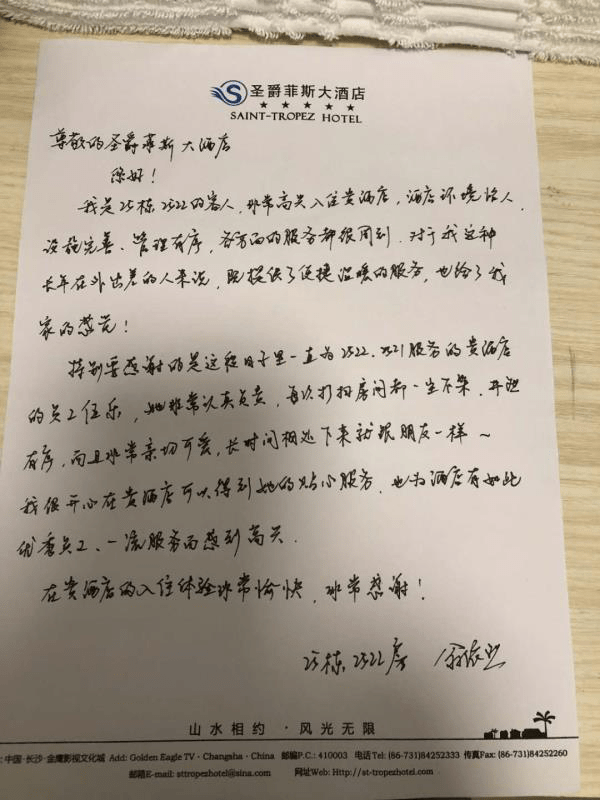 圣爵菲斯大酒店
★★★★★
SAINT-TROPEZ HOTEL
尊敬的圣爵菲斯大酒店
您好！
我是25栋2522的客人，非常高兴入住贵酒店，酒店环境怡人，
设施完善、管理有序，各方面的服务都很周到。对于我这种
长年在外出差的人来说，既提供了便捷温暖的服务，也给了我
家的感觉！
特别要感谢的是这段日子里一直为2522、2521服务的贵酒店
的员工任乐，她非常认真负责，每次打扫房间都一尘不染，井然
有序，而且非常亲切可爱，长时间相处下来就跟朋友一样～
我很开心在贵酒店可以得到她的贴心服务，也为酒店有如此
优秀员工、一流服务而感到高兴.
在贵酒店的入住体验非常愉快，非常感谢！
25栋2522房
山水相约·风光无限
:中国·长沙·金鹰影视文化城 Add: Golden Eagle TV·Changsha·China 邮编P.C.: 410003 电话Tel: (86-731)84252333 传真Fax: (86-731)84252260
邮箱E-mail: sttropezhotel@sina.com 网址Web: Http://st-tropezhotel.com